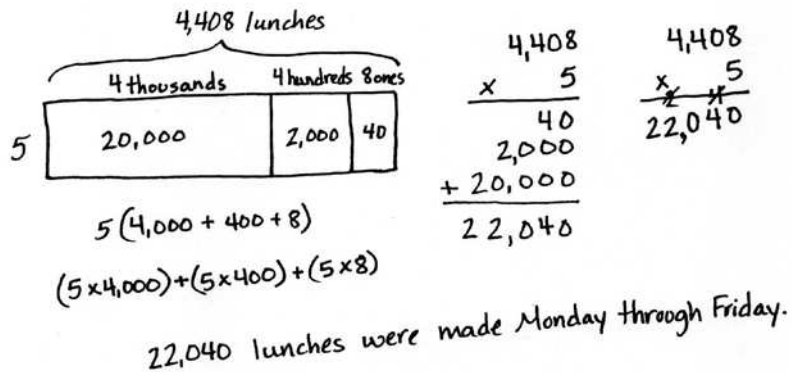 4,408 lunches
4 thousands 4 hundreds 8 ones
5 20,000 2,000 40
5(4,000 + 400 + 8)
(5×4,000)+(5×400)+(5×8)
4,408
× 5
40
2,000
+ 20,000
22,040
4,408
× 5
2 4
22,040
22,040 lunches were made Monday through Friday.